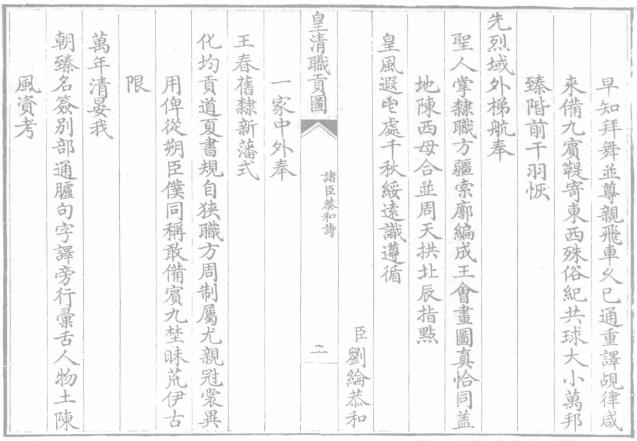 早知拜舞並尊親飛車久已通重譯覘律咸
來備九賓鞮寄東西殊俗紀共球大小萬邦
臻階前干羽恢
先烈域外梯航奉
聖人掌隸職方疆索廓編成王會畫圖真恰同盖
地陳西母合並周天拱北辰指點
皇風遐曁處千秋綏遠識遵循
臣劉綸恭和
皇清職貢圖
諸臣恭和詩
二
一家中外奉
王春舊隸新藩式
化均貢道夏書規自狹職方周制屬尤親冠裳異
用俾從朔臣僕同稱敢備賓九埜昧荒伊古
限
萬年清晏我
朝臻名簽別部通臚句字譯旁行彚舌人物土陳
風資考